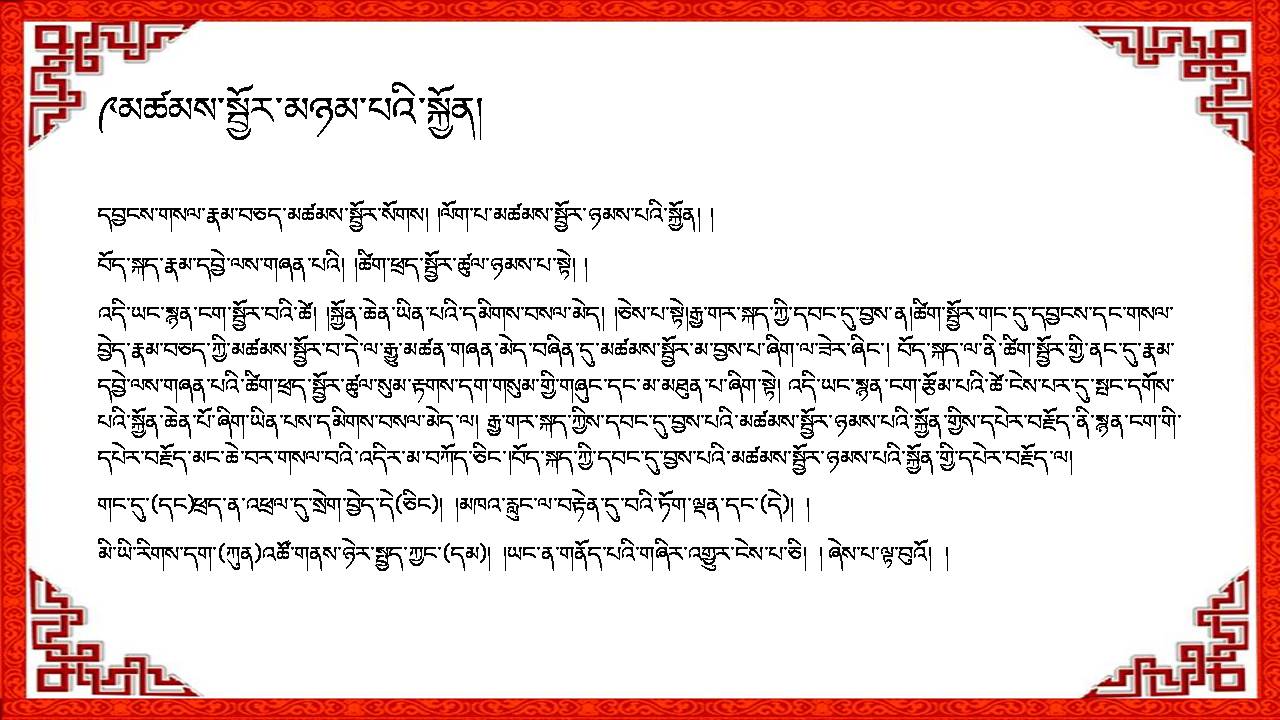 ༩མཚམས་སྦྱོར་མཉམ་པའི་སྐྱོན།
དབྱངས་གསལ་རྣམ་བཅད་མཚམས་སྦྱོར་སོགས། །ལོག་པ་མཚམས་སྦྱོར་ཉམས་པའི་སྐྱོན། །
བོད་སྐད་རྣམ་དབྱེ་ལས་གཞན་པའི། །ཚིག་ཕྲད་སྦྱོར་ཚུལ་ཉམས་པ་སྟེ། །
འདི་ཡང་སྙན་ངག་སྦྱོར་བའི་ཚེ། །སྐྱོན་ཆེན་ཡིན་པའི་དམིགས་བསལ་མེད། །ཅེས་པ་སྟེ།རྒྱ་གར་སྐད་ཀྱི་དབང་དུ་བྱས་ན།ཚིག་སྦྱོར་གང་དུ་དབྱངས་དང་གསལ་
བྱེད་རྣམ་བཅད་ཀྱི་མཚམས་སྦྱོར་བ་དེ་ལ་རྒྱུ་མཚན་གཞན་མེད་བཞིན་དུ་མཚམས་སྦྱོར་མ་བྱས་པ་ཞིག་ལ་ཟེར་ཞིང་། བོད་སྐད་ལ་ནི་ཚིག་སྦྱོར་གྱི་ནང་དུ་རྣམ་
དབྱེ་ལས་གཞན་པའི་ཚིག་ཕྲད་སྦྱོར་ཚུལ་སུམ་རྟགས་དག་གསུམ་གྱི་གཞུང་དང་མ་མཐུན་པ་ཞིག་སྟེ། འདི་ཡང་སྙན་ངག་རྩོམ་པའི་ཚེ་ངེས་པར་དུ་སྤང་དགོས་
པའི་སྐྱོན་ཆེན་པོ་ཞིག་ཡིན་པས་དམིགས་བསལ་མེད་ལ། རྒྱ་གར་སྐད་ཀྱིས་དབང་དུ་བྱས་པའི་མཚམས་སྦྱོར་ཉམས་པའི་སྐྱོན་གྱིས་དཔེར་བརྗོད་ནི་སྙན་ངག་གི་
དཔེར་བརྗོད་མང་ཆེ་བར་གསལ་བའི་འདིར་མ་བཀོད་ཅིང་།བོད་སྐད་ཀྱི་དབང་དུ་བྱས་པའི་མཚམས་སྦྱོར་ཉམས་པའི་སྐྱོན་གྱི་དཔེར་བརྗོད་ལ།
གང་དུ་(དང)ཕྲད་ན་འཕྲལ་དུ་སྲེག་བྱེད་དེ(ཅིང)། །མཁའ་རླུང་ལ་བརྟེན་དུ་བའི་ཏོག་ལྡན་དང་(དེ)། །
མི་ཡི་རིགས་དག་(ཀུན)འཚོ་གནས་ཉེར་སྤྱད་ཀྱང་(དམ)། །ཡང་ན་གནོད་པའི་གཞིར་འགྱུར་ངེས་པ་ཅི། །ཞེས་པ་ལྟ་བུའོ། །